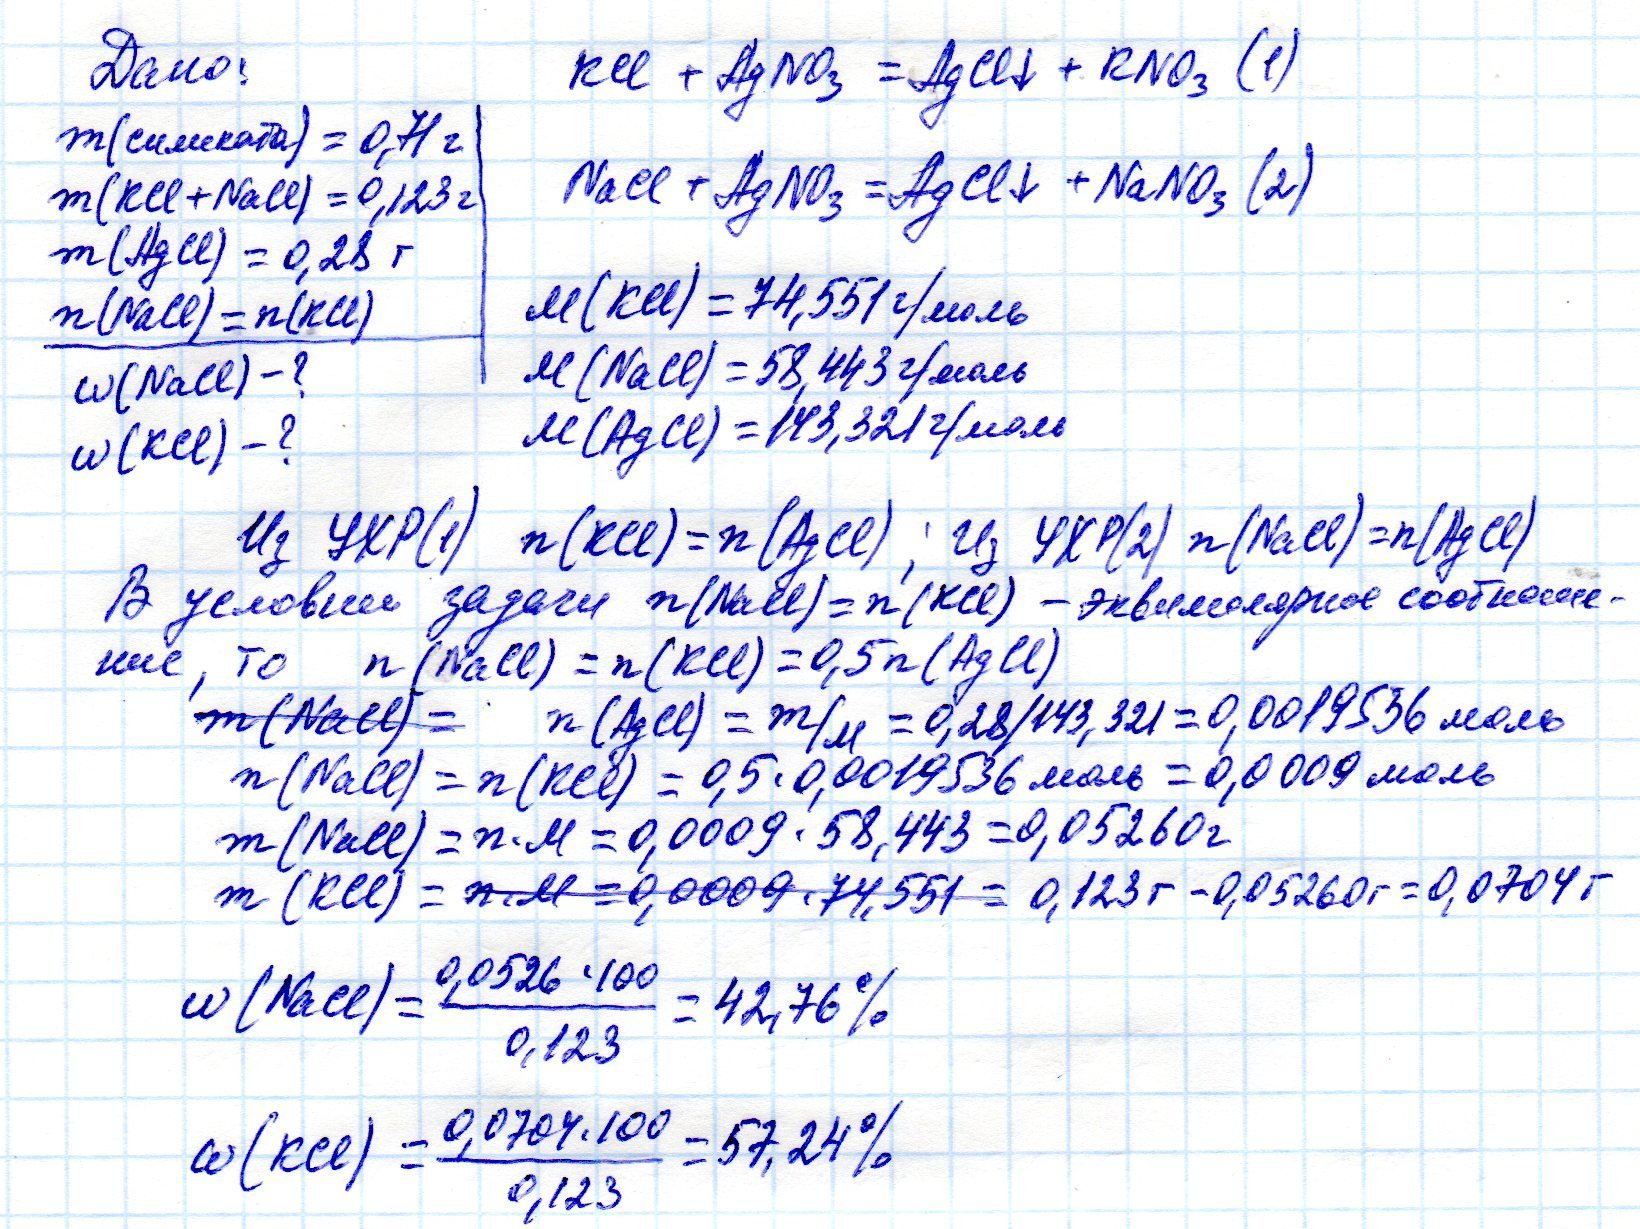 Дано:
m(силиката) = 0,71 г
m(KCl+NaCl) = 0,123 г
m(AgCl) = 0,28 г
n(NaCl) = n(KCl)
ω(NaCl) - ?
ω(KCl) - ?
KCl + AgNO₃ = AgCl↓ + KNO₃ (1)
NaCl + AgNO₃ = AgCl↓ + NaNO₃ (2)
M(KCl) = 74,551 г/моль
M(NaCl) = 58,443 г/моль
M(AgCl) = 143,321 г/моль
Из УХР(1) n(KCl) = n(AgCl); Из УХР(2) n(NaCl) = n(AgCl)
В условии задачи n(NaCl) = n(KCl) - эквимолярное соотноше-
ние, то n(NaCl) = n(KCl) = 0,5n(AgCl)
m(NaCl) = n(AgCl) = m/M = 0,28/143,321 = 0,0019536 моль
n(NaCl) = n(KCl) = 0,5·0,0019536 моль = 0,0009 моль
m(NaCl) = n·M = 0,0009·58,443 = 0,05260 г
m(KCl) = n·M = 0,0009·74,551 = 0,123 г - 0,05260 г = 0,0704 г
ω(NaCl) = 0,0526·100 / 0,123 = 42,76%
ω(KCl) = 0,0704·100 / 0,123 = 57,24%